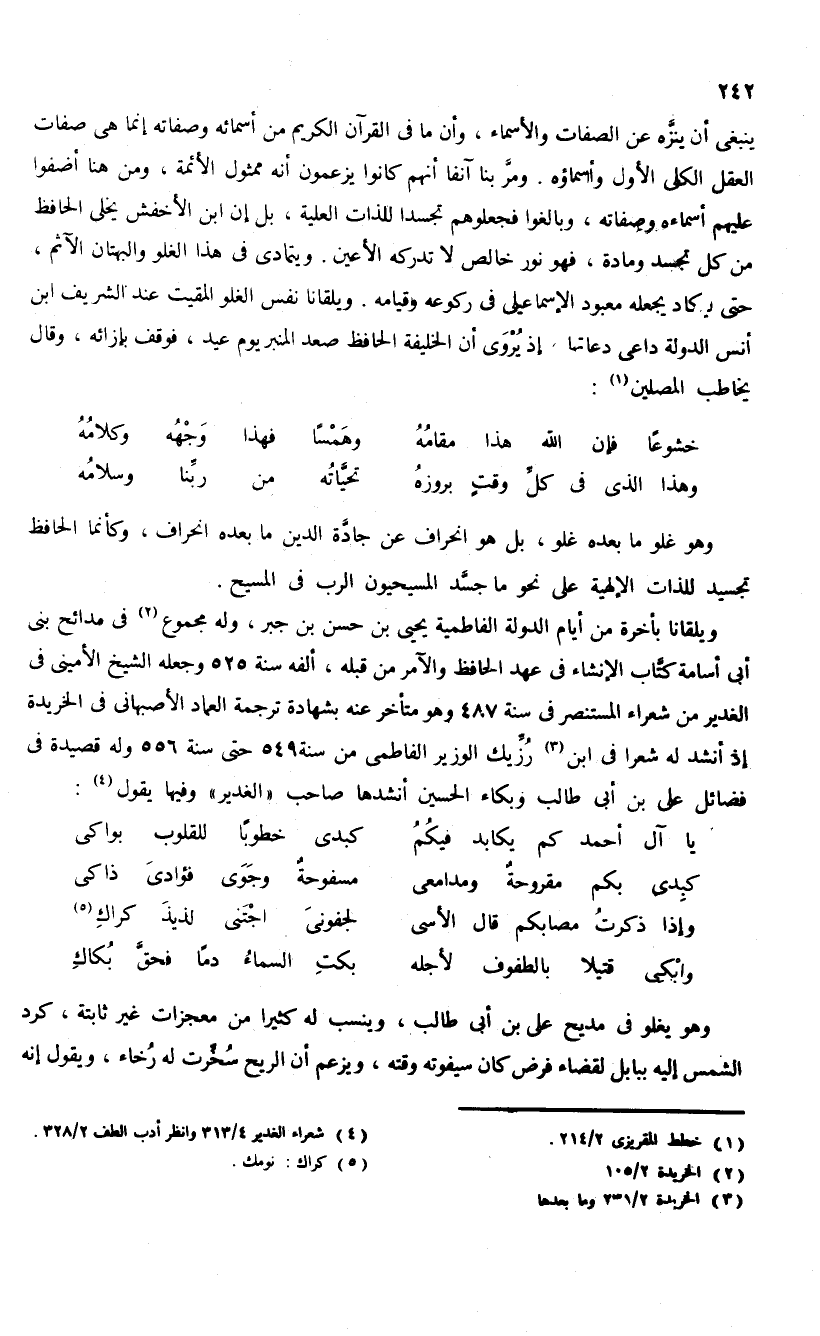 ٢٤٢
ينبغى أن ينزَّه عن الصفات والأسماء ، وأن ما فى القرآن الكريم من أسمائه وصفاته إنما هى صفات
العقل الكلى الأول وأسماؤه . ومرَّ بنا آنفا أنهم كانوا يزعمون أنه ممثول الأئمة ، ومن هنا أضفوا
عليهم أسماءه وصفاته ، وبالغوا فجعلوهم تجسدا للذات العلية ، بل إن ابن الأخفش يخلى الحافظ
من كل تجسد ومادة ، فهو نور خالص لا تدركه الأعين . ويتمادى فى هذا الغلو والبهتان الآثم ،
حتى يكاد يجعله معبود الإسماعيلى فى ركوعه وقيامه . ويلقانا نفس الغلو المقيت عند الشريف ابن
أنس الدولة داعى دعاتها ، إذ يُرْوَى أن الخليفة الحافظ صعد المنبر يوم عيد ، فوقف بإزائه ، وقال
يخاطب المصلين(١) :
خشوعًا فإن الله هذا مقامُهُ وهَمْسًا فهذا وَجْهُه وكلامُهُ
وهذا الذى فى كلِّ وقتٍ بروزهُ تحيَّاتُه من ربِّنا وسلامُه
وهو غلو ما بعده غلو ، بل هو انحراف عن جادَّة الدين ما بعده انحراف ، وكأنما الحافظ
تجسيد للذات الإلهية على نحو ما جسَّد المسيحيون الرب فى المسيح .
ويلقانا بأخرة من أيام الدولة الفاطمية يحيى بن حسن بن جبر ، وله مجموع(٢) فى مدائح بنى
أبى أسامة كتَّاب الإنشاء فى عهد الحافظ والآمر من قبله ، ألفه سنة ٥٢٥ وجعله الشيخ الأمينى فى
الغدير من شعراء المستنصر فى سنة ٤٨٧ وهو متأخر عنه بشهادة ترجمة العماد الأصبهانى فى الخريدة
إذ أنشد له شعرا فى ابن(٣) رُزِّيك الوزير الفاطمى من سنة ٥٤٩ حتى سنة ٥٥٦ وله قصيدة فى
فضائل على بن أبى طالب وبكاء الحسين أنشدها صاحب «الغدير» وفيها يقول(٤) :
يا آل أحمد كم يكابد فيكُمُ كبدى خطوبًا للقلوب بواكى
كبِدى بكم مقروحةٌ ومدامعى مسفوحةٌ وجَوَى فؤادىَ ذاكى
وإذا ذكرتُ مصابكم قال الأسى لجفونىَ اجْتَنى لذيذَ كراكِ(٥)
وابْكِى قتيلا بالطفوف لأجله بكتِ السماءُ دمًا فحقَّ بُكاكِ
وهو يغلو فى مديح على بن أبى طالب ، وينسب له كثيرا من معجزات غير ثابتة ، كرد
الشمس إليه ببابل لقضاء فرض كان سيفوته وقته ، ويزعم أن الريح سُخِّرت له رُخاء ، ويقول إنه
(١) خطط المقريزى ٢١٤/٢ .
(٢) الخريدة ١٠٥/٢
(٣) الخريدة ٢٣١/٢ وما بعدها
(٤) شعراء الغدير ٣١٣/٤ وانظر أدب الطف ٣٢٨/٢ .
(٥) كراك : نومك .